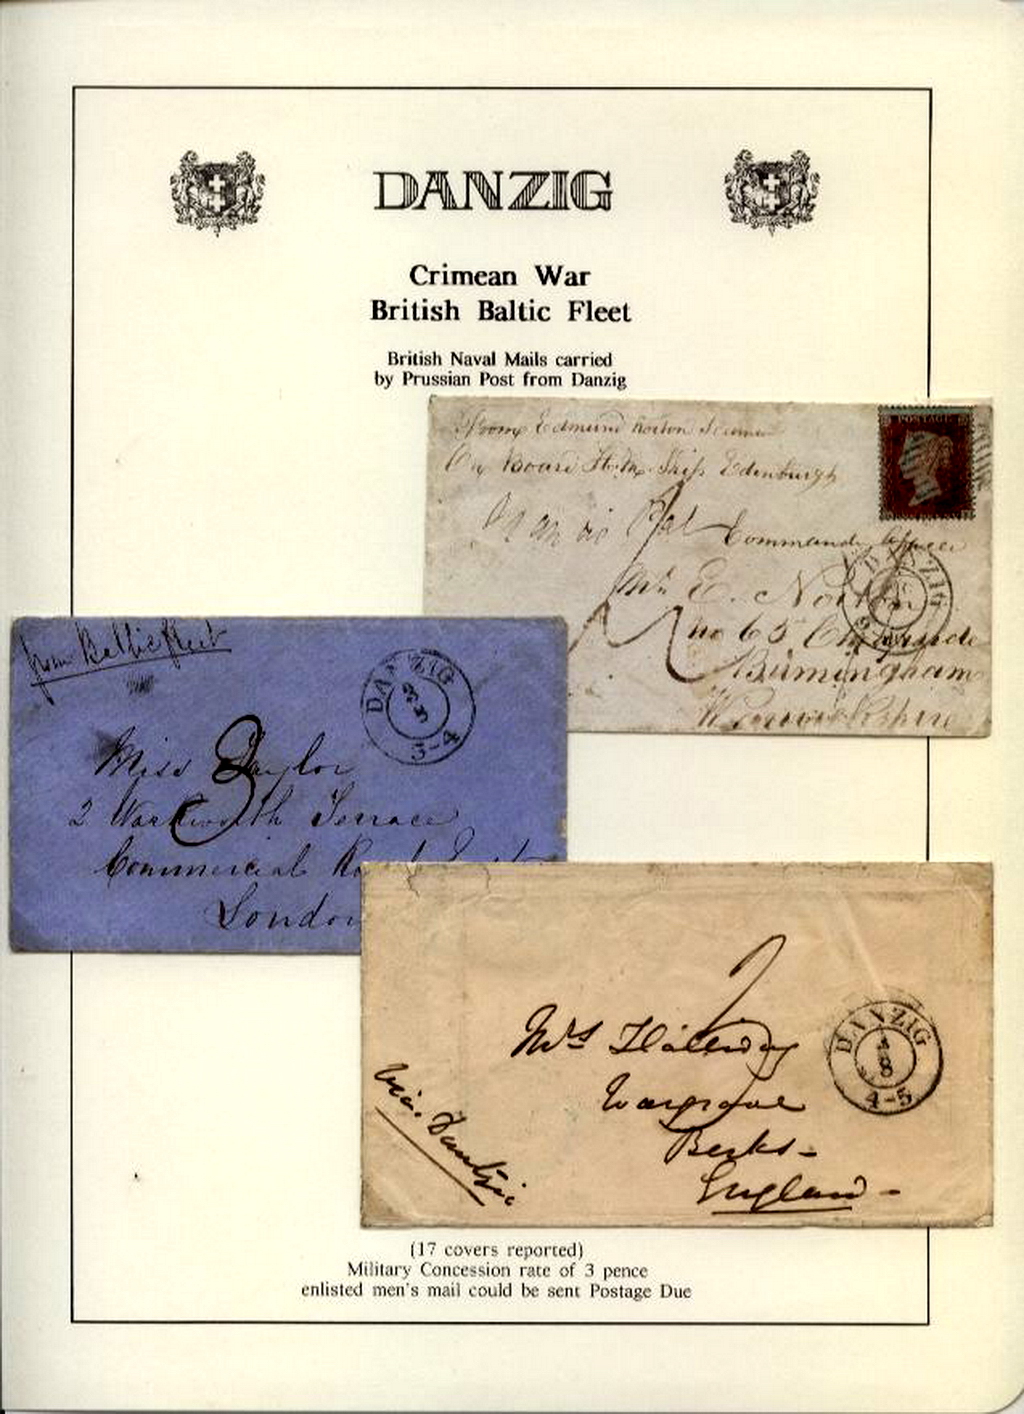 DANZIG
Crimean War
British Baltic Fleet
British Naval Mails carried
by Prussian Post from Danzig
From Edmund Norton Seaman
On Board H.M. Ship Edinburgh
POSTAGE
Commanding Officer
Mr E. Norton
No 65
Birmingham
Warwickshire
DANZIG
from Baltic fleet
DANZIG
3
5
3-4
3
Miss Taylor
2 Warkworth Terrace
Commercial Road East
London
Mrs Hallway
Wargrave
Berks-
England-
via. Dantzic
DANZIG
8
4-5
(17 covers reported)
Military Concession rate of 3 pence
enlisted men's mail could be sent Postage Due